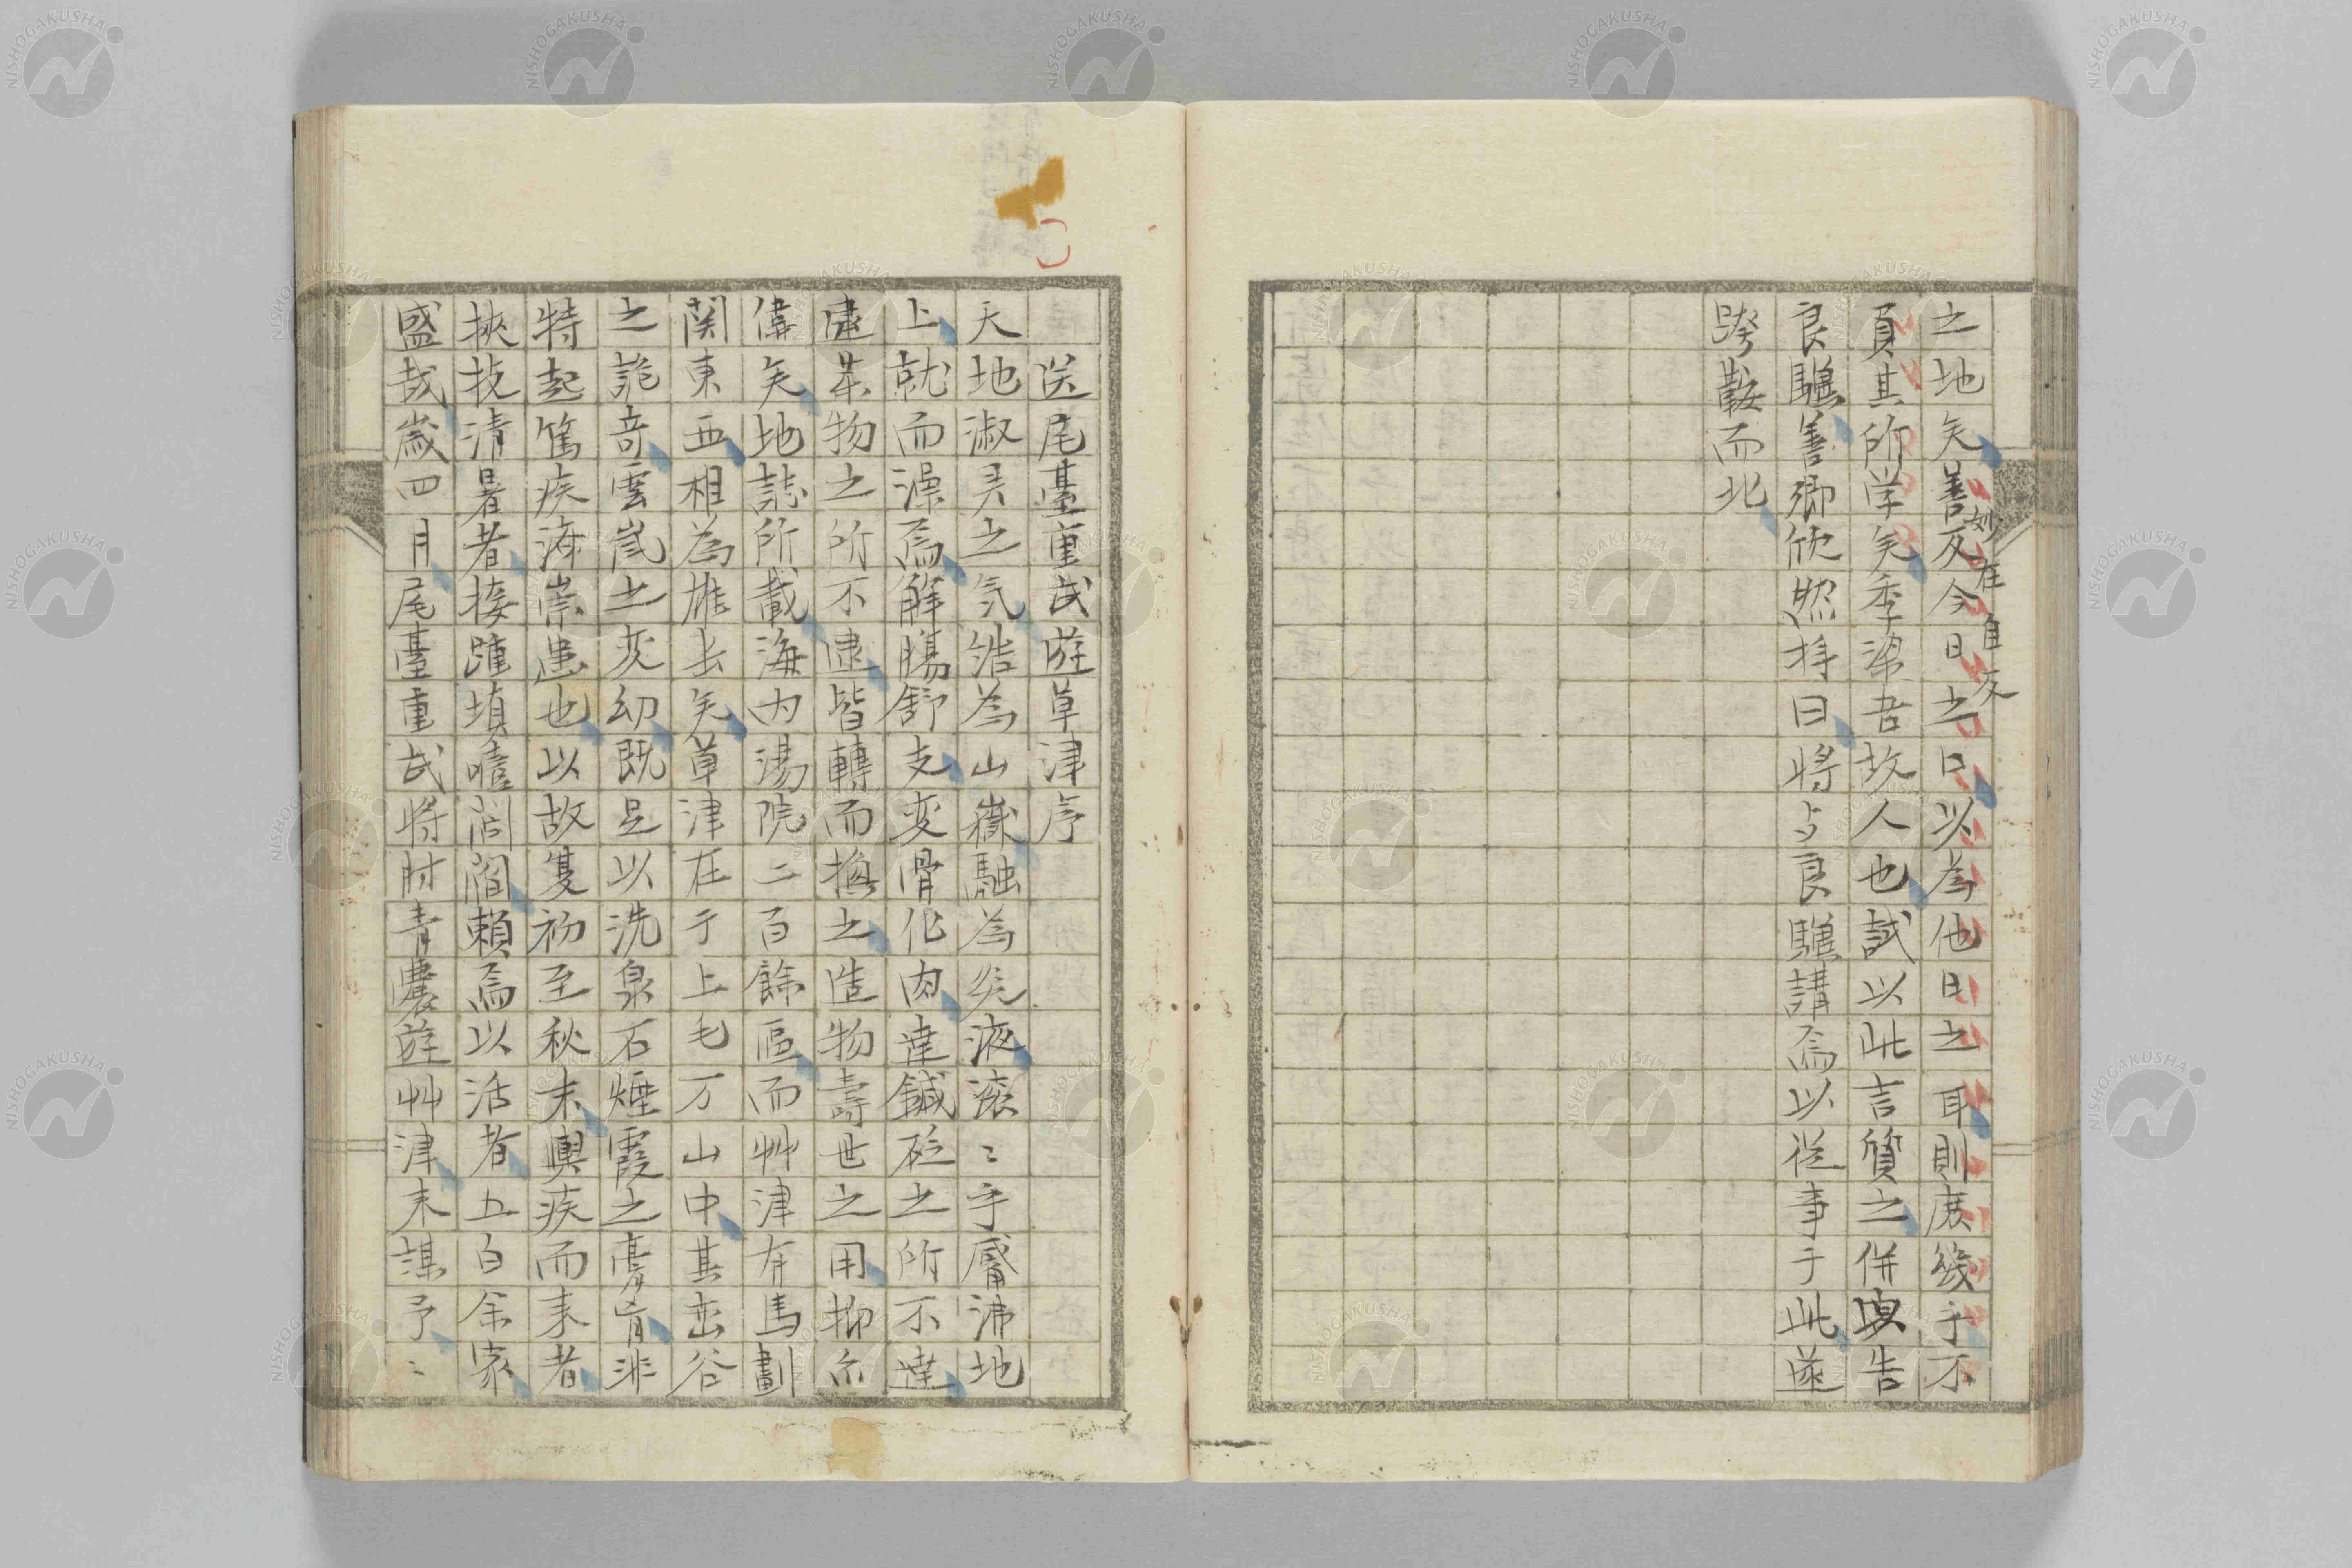 之地矣善友今日之口以為他日之耳則庶幾乎不
妙在自友
負其所学矣季梁吾故人也試以此言質之併與告
良驥善卿欣然揖曰将与良驥講焉以従事于此遂
跨鞍而北
送尾臺重武遊草津序
天地淑灵之気結為山嶽融為炎液滾〻乎觱沸地
上就而澡焉解腸舒支変骨化肉達鍼砭之所不達
還某物之所不逮皆轉而換之造物壽世之用抑亦
偉矣地誌所載海内湯院二百餘區而艸津有馬劃
関東西相為雄長矣草津在于上毛万山中其峦谷
之詭奇雲嵐之変幻既足以洗泉石煙霞之膏肓況
特起篤疾済祟患也以故夏初至秋末輿疾而来者
挟技清暑者接踵填噎閭閻頼焉以活者五百余家
盛哉歳四月尾臺重武将肘青嚢遊艸津来謀予〻
NISHOGAKUSHA